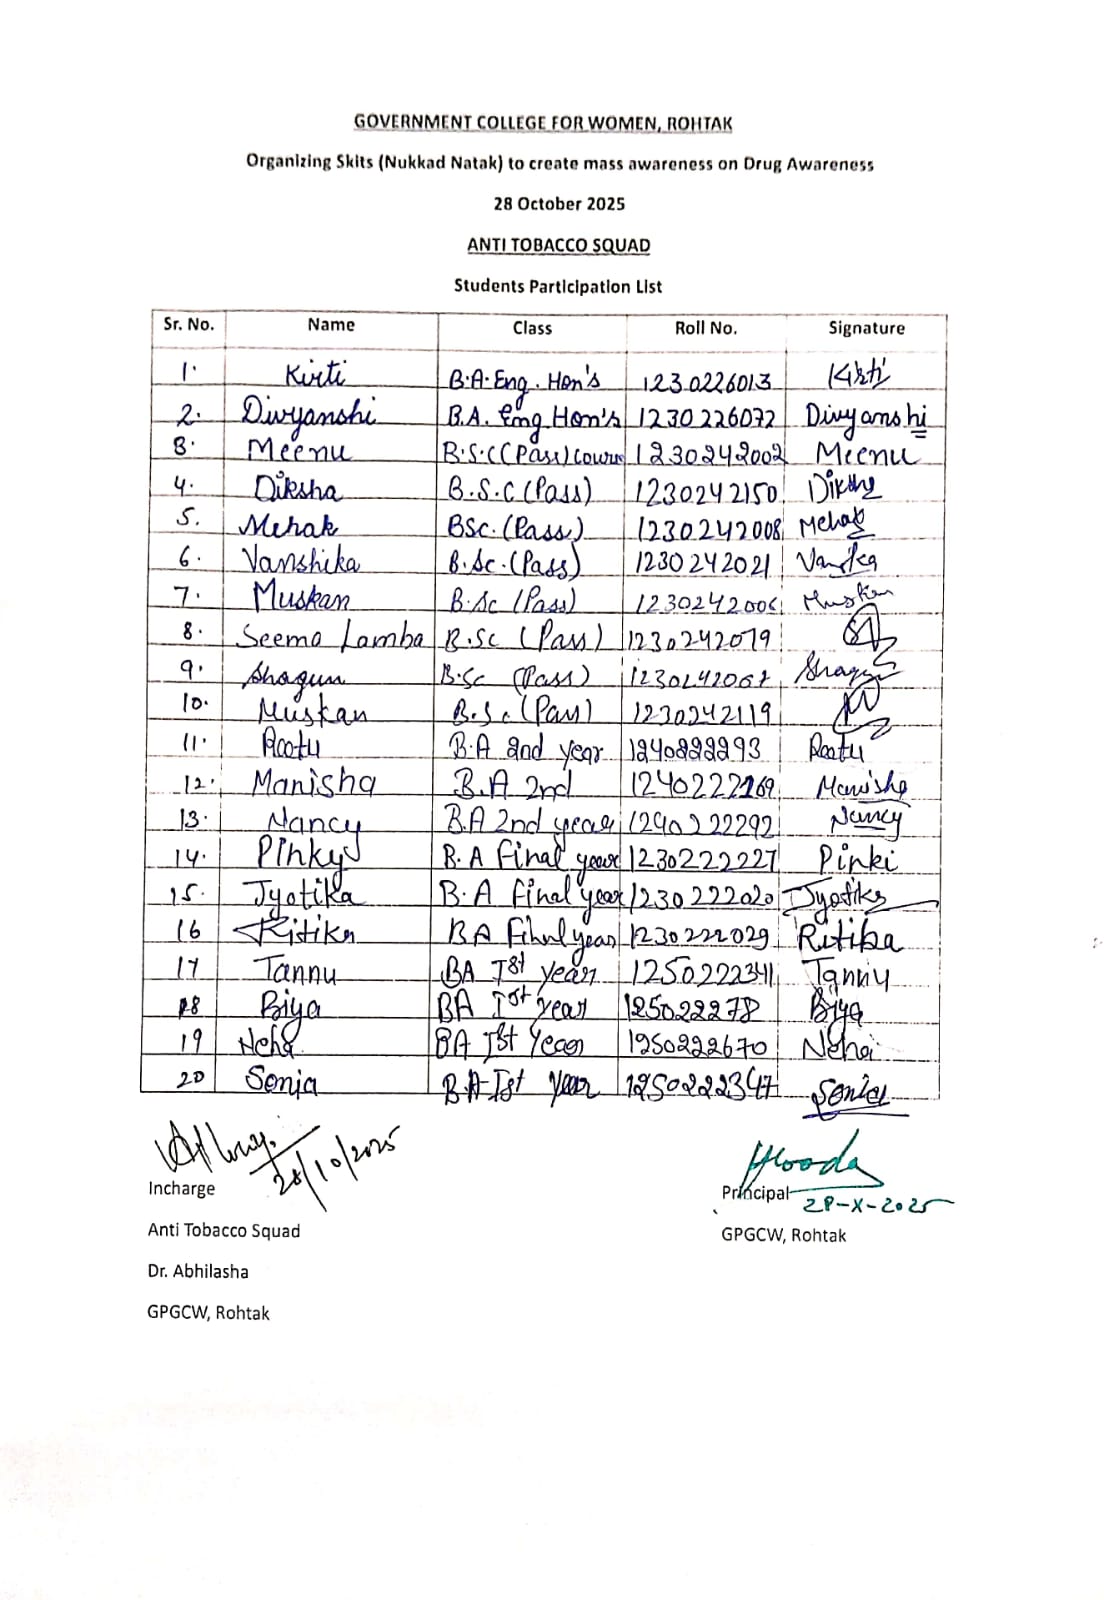 GOVERNMENT COLLEGE FOR WOMEN, ROHTAK
Organizing Skits (Nukkad Natak) to create mass awareness on Drug Awareness
28 October 2025
ANTI TOBACCO SQUAD
Students Participation List
Sr. No. Name Class Roll No. Signature
1. Kirti B.A. Eng. Hon's 1230226013 Kirti
2. Divyanshi B.A. Eng Hon's 1230226072 Divyanshi
3. Meenu B.S.C (Pass) course 1230242002 Meenu
4. Diksha B.S.C (Pass) 1230242150 Diksha
5. Mehak BSc. (Pass) 1230242008 Mehak
6. Vanshika B.Sc. (Pass) 1230242021
7. Muskan B.Sc (Pass) Muskan
8. Seema Lamba B.Sc (Pass) 1230242079
9. Shagun B.Sc (Pass)
10. Muskan B.Sc (Pass) 1230242119
11. Reetu B.A 2nd year 1240222293 Reetu
12. Manisha B.A 2nd Manisha
13. Nancy B.A 2nd year 1240222292 Nancy
14. Pinky B.A Final year 1230222227 Pinki
15. Jyotika B.A Final year 1230222020 Jyotika
16 Ritika BA Final year 1230222029 Ritika
17 Tannu BA Ist year 1250222341 Tannu
18 Biya BA Ist year 125022278 Biya
19 Neha BA Ist Year 1250222670 Neha
20 Sonia B.A-Ist year 1250222347 Sonia
28/10/2025
Hooda
Incharge
Principal
28-X-2025
Anti Tobacco Squad
GPGCW, Rohtak
Dr. Abhilasha
GPGCW, Rohtak